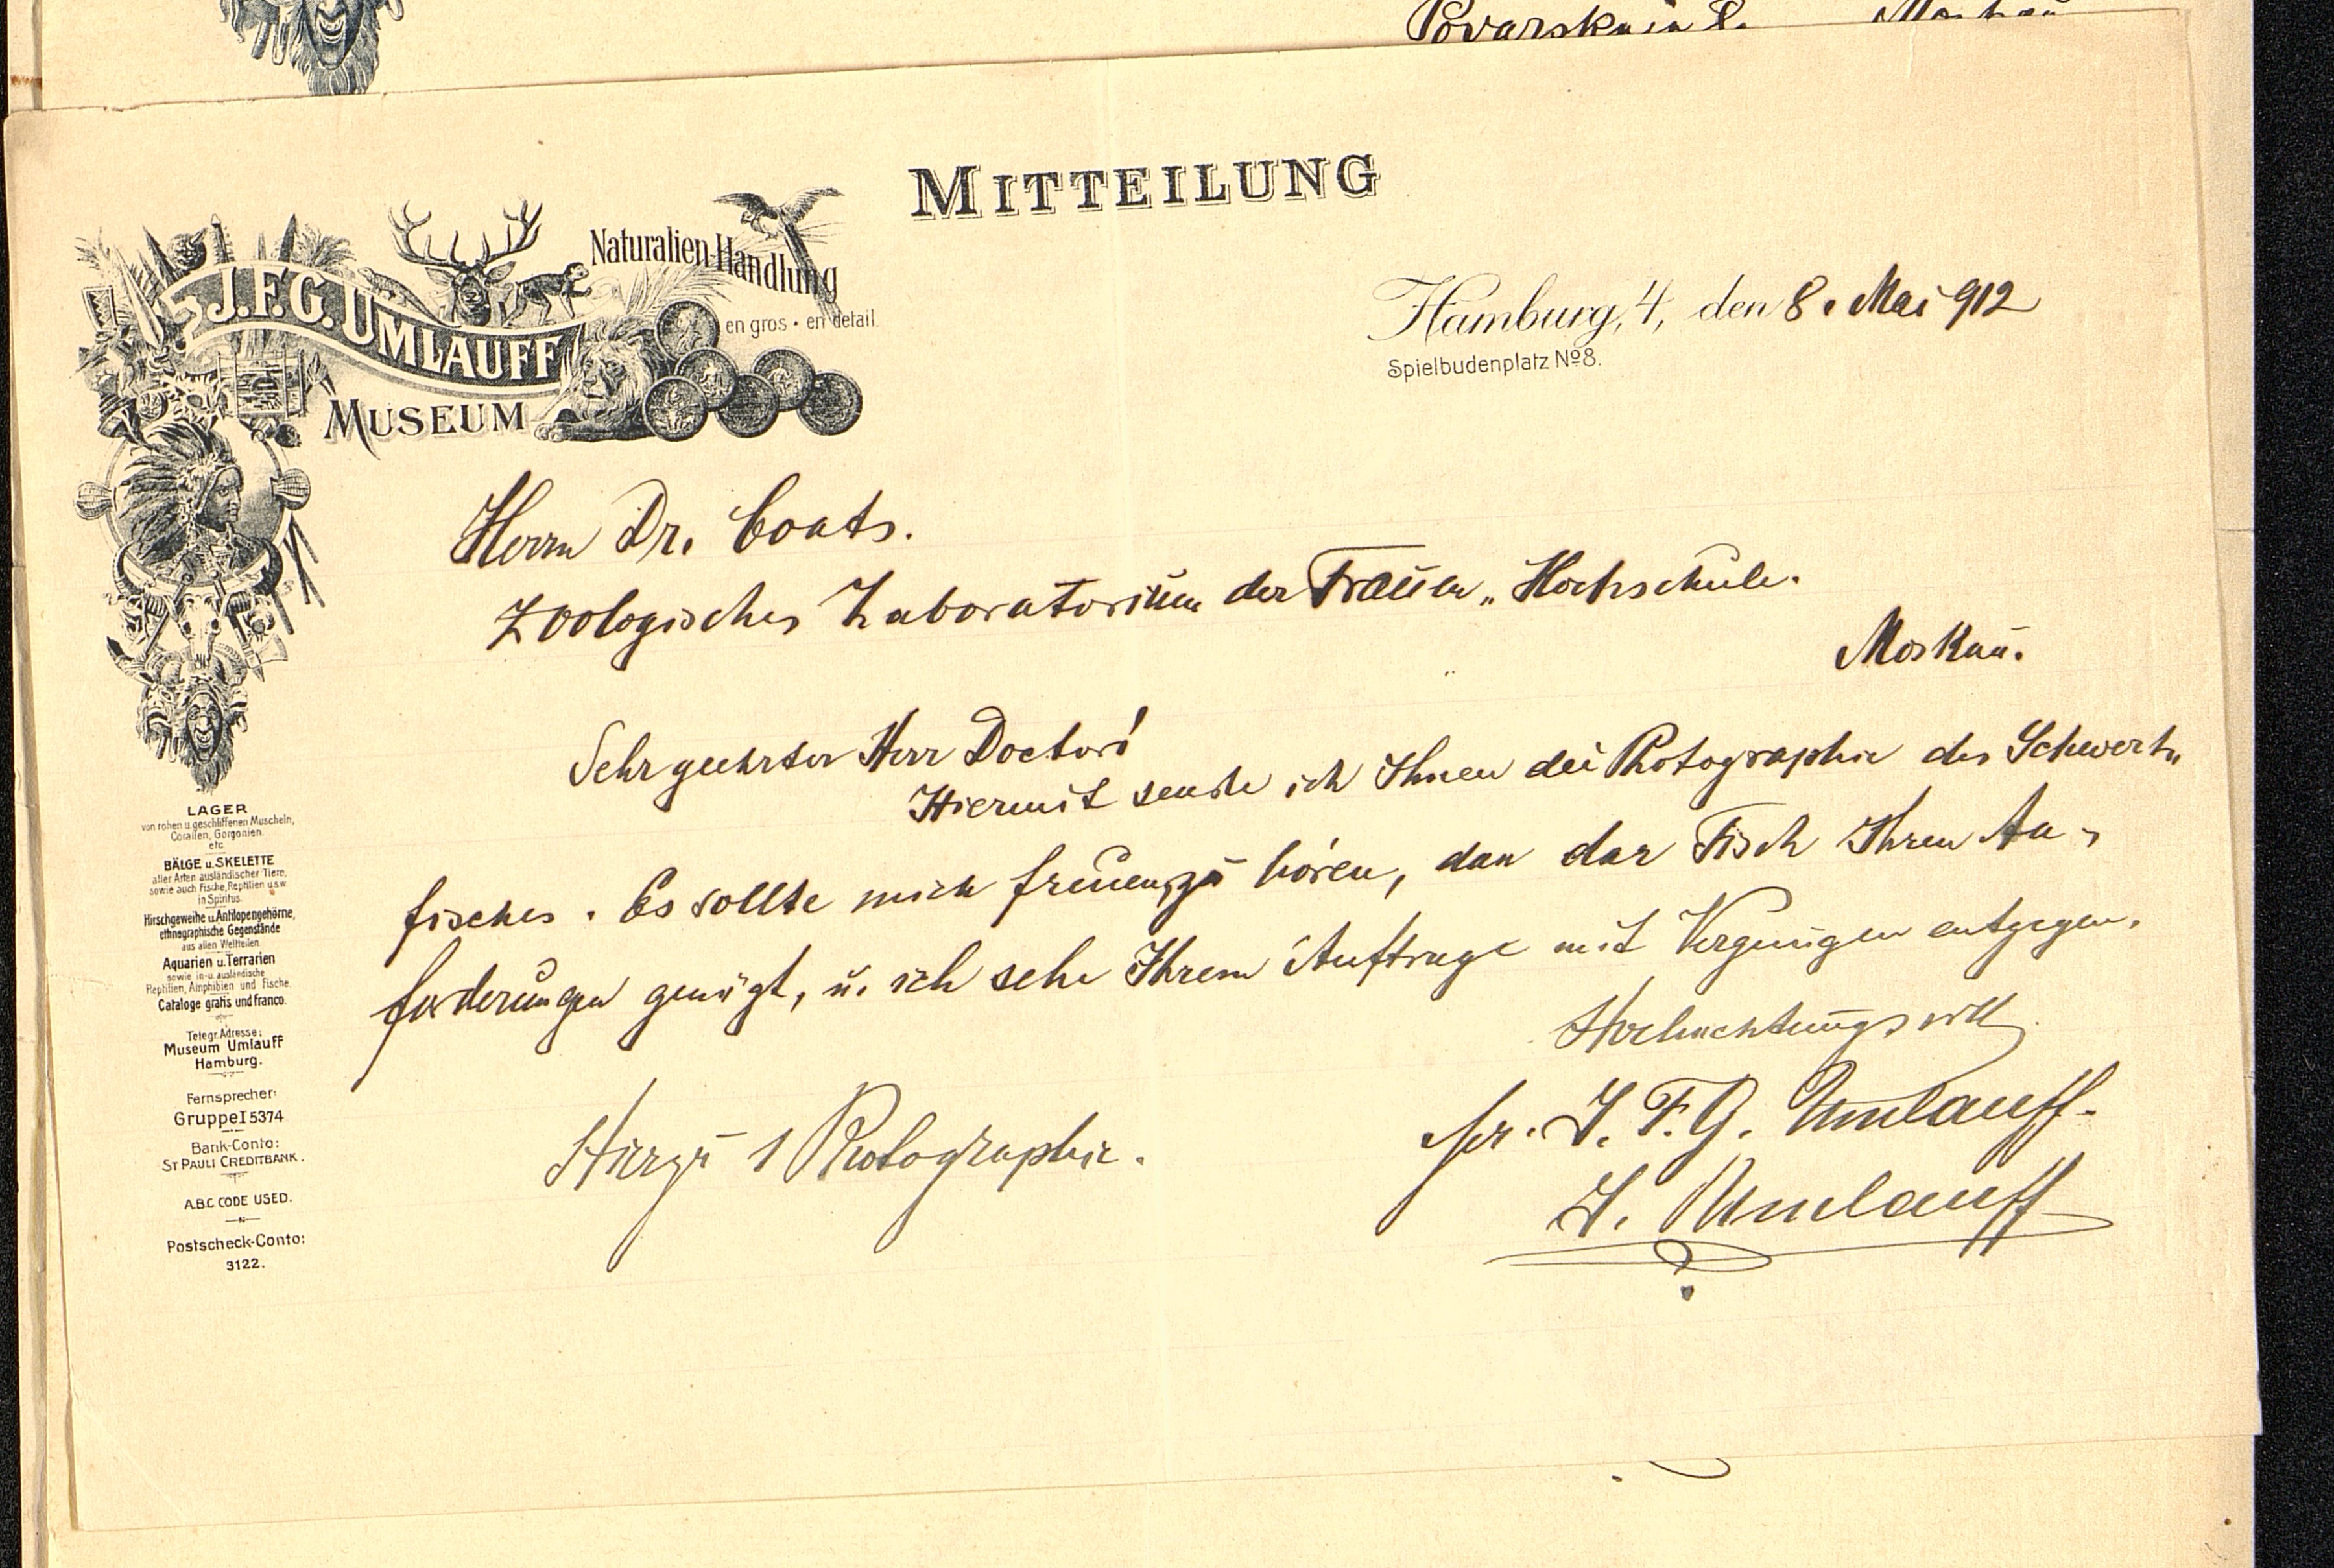 Povarskaia
MITTEILUNG
J.F.G. UMLAUFF
MUSEUM
Naturalien-Handlung
en gros • en detail.
Hamburg, 4, den 8. Mai 912
Spielbudenplatz No 8.
Herrn Dr. Coats.
Zoologisches Laboratorium der Frauen „ Hochschule.
Moskau.
Sehr geehrter Herr Doctor!
Hiermit sende ich Ihnen die Photographie des Schwert„
fisches. Es sollte mich freuen, zu hören, dass der Fisch Ihren An-
forderungen genügt, u. ich sehe Ihrem Auftrage mit Vergnügen entgegen.
Hochachtungsvoll
per. J. F. G. Umlauff.
J. Umlauff
Hierzu 1 Photographie.
LAGER
von rohen u. geschliffenen Muscheln,
Corallen, Gorgonien.
etc.
BÄLGE u. SKELETTE
aller Arten ausländischer Tiere,
sowie auch Fische, Reptilien u.s.w.
in Spiritus.
Hirschgeweihe u. Antilopengehörne,
ethnographische Gegenstände
aus allen Weltteilen.
Aquarien u. Terrarien
sowie in- u. ausländische
Reptilien, Amphibien und Fische.
Cataloge gratis und franco.
Telegr. Adresse:
Museum Umlauff
Hamburg.
Fernsprecher:
Gruppe I 5374
Bank-Conto:
ST PAULI CREDITBANK.
A.B.C. CODE USED.
Postscheck-Conto:
3122.